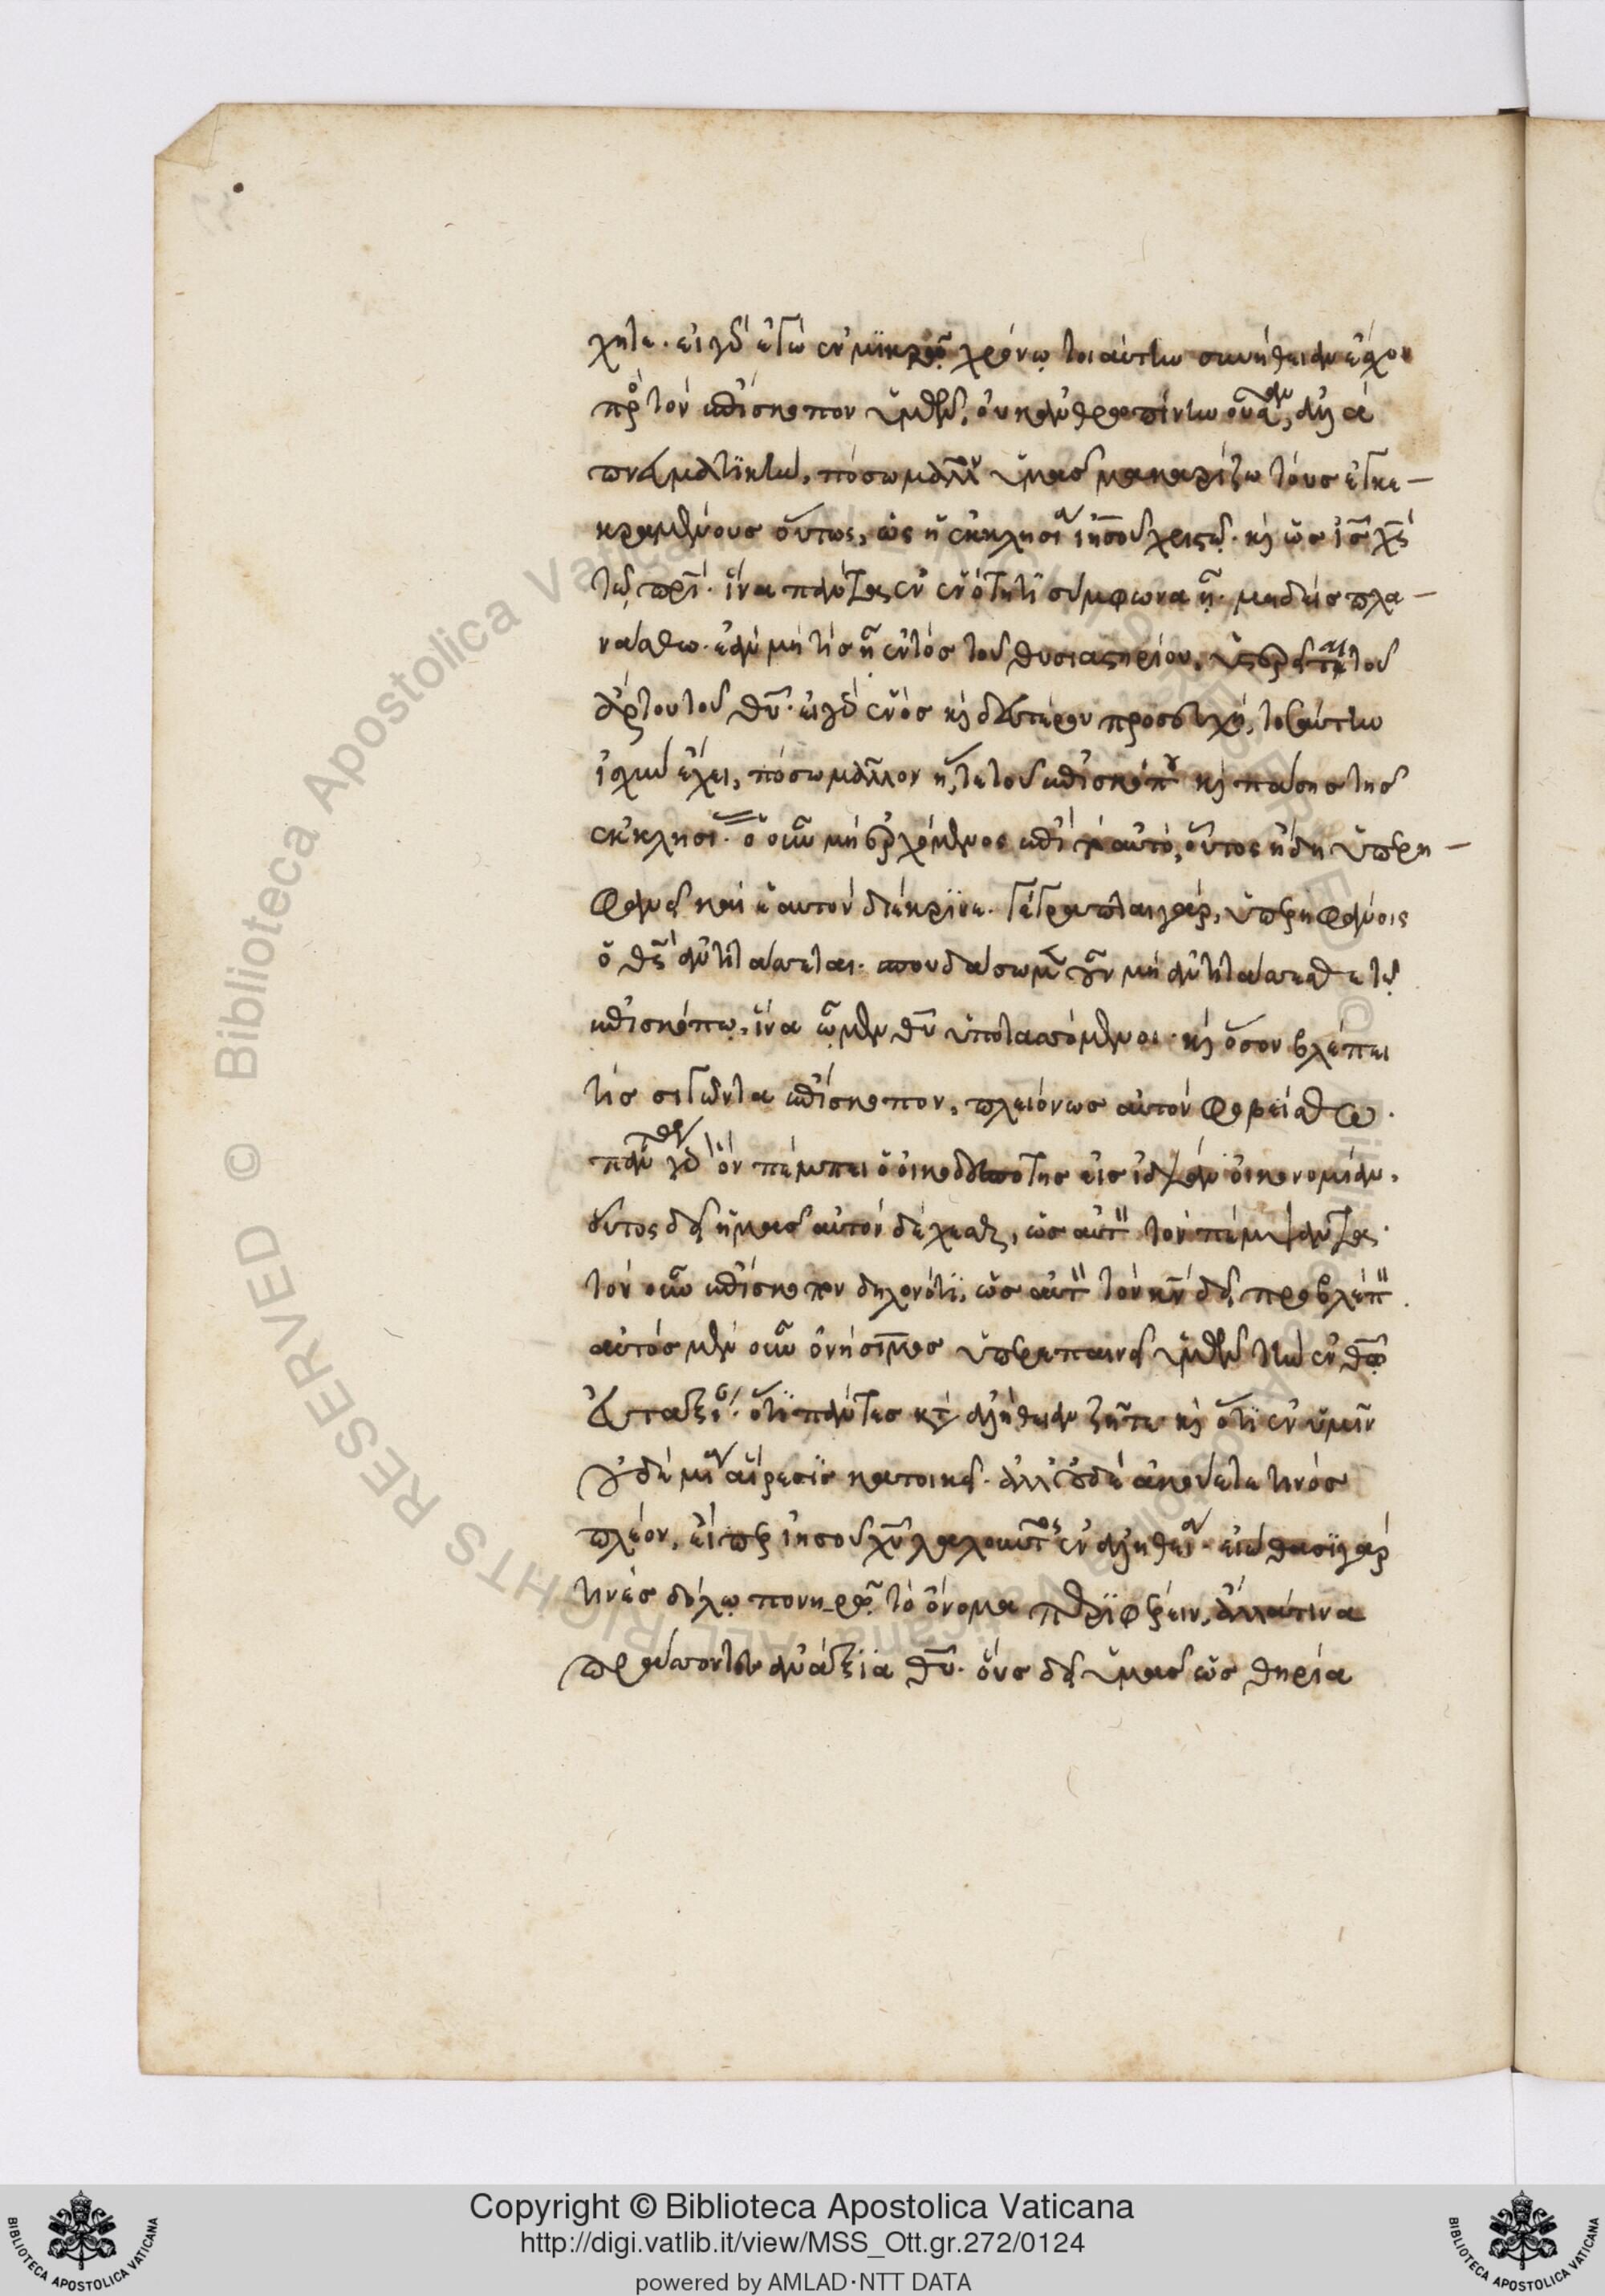 χητε. εἰ γὰρ ἐγὼ ἐν μικρῷ χρόνῳ τοιαύτην συνήθειαν ἔσχον
πρὸς τὸν ἐπίσκοπον ὑμῶν, οὐκ ἀνθρωπίνην οὖσαν, ἀλλὰ
πνευματικὴν, πόσω μᾶλλον ὑμᾶς μακαρίζω τοὺς ἐγκε-
κραμένους οὕτως, ὡς ἡ ἐκκλησία ἰησοῦ χριστῷ. καὶ ὡς ἰς χς
τῷ πρί. ἵνα πάντα ἐν ἑνότητι σύμφωνα ᾖ. μηδεὶς πλα-
νάσθω. ἐὰν μή τις ᾖ ἐντὸς τοῦ θυσιαστηρίου, ὑστερεῖται τοῦ
ἄρτου τοῦ θυ. εἰ γὰρ ἑνὸς καὶ δευτέρου προσευχὴ, τοσαύτην
ἰσχὺν ἔχει, πόσω μᾶλλον ἥ, τε τοῦ ἐπισκόπου καὶ πάσης τῆς
ἐκκλησίας. ὁ οὖν μὴ ἐρχόμενος ἐπὶ τὸ αὐτὸ, οὗτος ἤδη ὑπερη-
φανεῖ καὶ ἑαυτὸν διέκρινε. γέγραπται γὰρ, ὑπερηφάνοις
ὁ θς ἀντιτάσσεται. σπουδάσωμεν οὖν μὴ ἀντιτάσσεσθε τῷ
ἐπισκόπῳ, ἵνα ὦμεν θυ ὑποτασσόμενοι. καὶ ὅσον βλέπει
τὶς σιγῶντα ἐπίσκοπον, πλειόνως αὐτὸν φοβείσθω.
πάντα γὰρ ὃν πέμπει ὁ οἰκοδεσπότης εἰς ἰδίαν οἰκονομίαν,
οὕτως δεῖ ἡμᾶς αὐτὸν δέχεσθαι, ὡς αὐτὸν τὸν πέμψαντα.
τὸν οὖν ἐπίσκοπον δηλονότι, ὡς αὐτὸν τὸν κν δεῖ προβλέπειν.
αὐτὸς μὲν οὖν ὀνήσιμος ὑπερεπαινεῖ ὑμῶν τὴν ἐν θῷ
εὐταξίαν. ὅτι πάντες κατὰ ἀλήθειαν ζῆτε καὶ ὅτι ἐν ὑμῖν
οὐδὲ μία αἵρεσις κατοικεῖ. ἀλλ' οὐδὲ ἀκούετε τινὸς
πλέον, εἴπερ ἰησοῦ χυ λαλοῦντος ἐν ἀληθεία. εἰώθασι γάρ
τινες δόλῳ πονηρῷ τὸ ὄνομα περιφέρειν, ἀλλά τινα
πράσσοντες ἀνάξια θυ. οὓς δεῖ ὑμᾶς ὡς θηρία
Copyright © Biblioteca Apostolica Vaticana
http://digi.vatlib.it/view/MSS_Ott.gr.272/0124
powered by AMLAD·NTT DATA